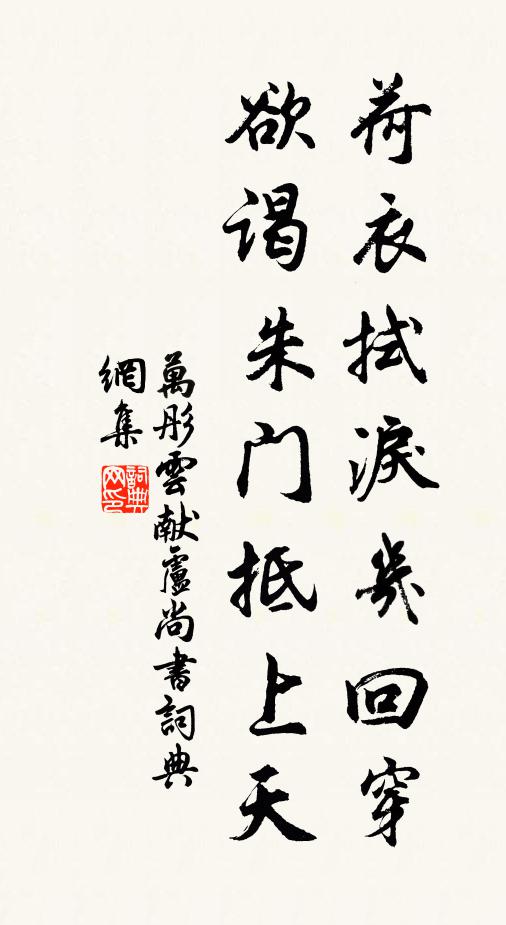 荷衣拭淚幾回穿
欲谒朱门抵上天
萬彤雲献盧尚書詞典
網集
詞典
网印